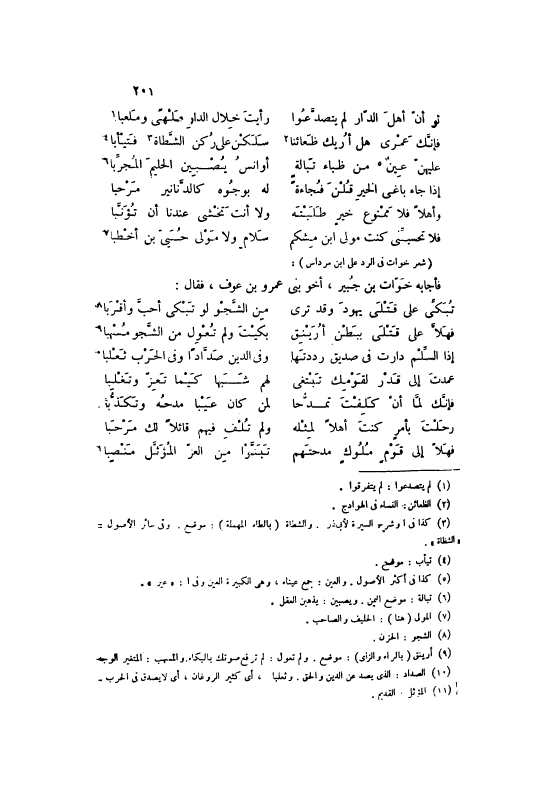 ٢٠١
لو أنّ أهلَ الدّار لم يتصدَّعُوا رأيتَ خِلالَ الدارِ مَلْهًى وملعبا١
فإنَّك عَمْرِى هل أُريك ظَعائنا٢ سَلَكْن على رُكن الشَّطاة٣ فَتَيْأَبا٤
عليهنّ عِينٌ٥ من ظباء تَبالةٍ أوانسُ يُصْبِين الحليمَ المُجرَّبا٦
إذا جاء باغى الخيرِ قُلْنَ فُجاءةً له بوجُوه كالدَّنانيرِ مَرْحبا
وأهلاً فلا ممنوعَ خيرٍ طَلَبْتَه ولا أنتَ تَخْشى عندنا أن تُؤنَّبا
فلا تحسبنِّى كنت مولى ابن مِشكم سَلامٍ ولا مَوْلى حُيَىِّ بن أخْطبا٧
( شعر خوات فى الرد على ابن مرداس ) :
فأجابه خَوّات بن جُبير ، أخو بنى عمرو بن عوف ، فقال :
تُبَكِّى على قَتْلَى يهودَ وقد ترى مِن الشَّجْو لو تَبْكى أحبَّ وأقربا٨
فهلاَّ على قَتْلَى بِبَطْن أُرَيْنِقٍ بكيْتَ ولم تُعْوِل من الشَّجو مُسْهِبا٩
إذا السِّلْم دارت فى صديق رددتَها وفى الدين صَدَّادًا وفى الحَرْب ثَعْلبا١٠
عمدتَ إلى قَدْرٍ لقوْمِك تَبْتغى لهم شَبَهًا كَيْما تَعزّ وتَغْلِبا
فإنَّك لمَّا أنْ كَلِفْتَ تمدُّحا لمن كان عَيْبا مدحُه وتكذُّبا
رحلْتَ بأمرٍ كنتَ أهلاً لمِثْله ولم تُلْفِ فيهم قائلاً لك مَرْحَبا
فهَلاَّ إلى قَوْمٍ مُلُوكٍ مدحتَهم تَبَنَّوْا من العزّ المُؤثَّل مَنْصِبا١١
(١) لم يتصدعوا : لم يتفرقوا .
(٢) الظعائن : النساء فى الهوادج .
(٣) كذا فى ا وشرح السيرة لأبى ذر . والشطاة ( بالطاء المهملة ) : موضع . وفى سائر الأصول :
« الشظاة » .
(٤) تيأب : موضع .
(٥) كذا فى أكثر الأصول . والعين : جمع عيناء ، وهى الكبيرة العين وفى ا : « عير » .
(٦) تبالة : موضع اليمن . ويصبين : يذهبن العقل .
(٧) المولى ( هنا ) : الحليف والصاحب .
(٨) الشجو : الحزن .
(٩) أرينق ( بالراء والزاى ) : موضع . ولم تعول : لم ترفع صوتك بالبكاء. والمسهب : المتغير الوجه
(١٠) الصداد : الذى يصد عن الدين والحق . وثعلبا ، أى كثير الروغان ، أى لا يصدق فى الحرب .
(١١) المؤثل : القديم .